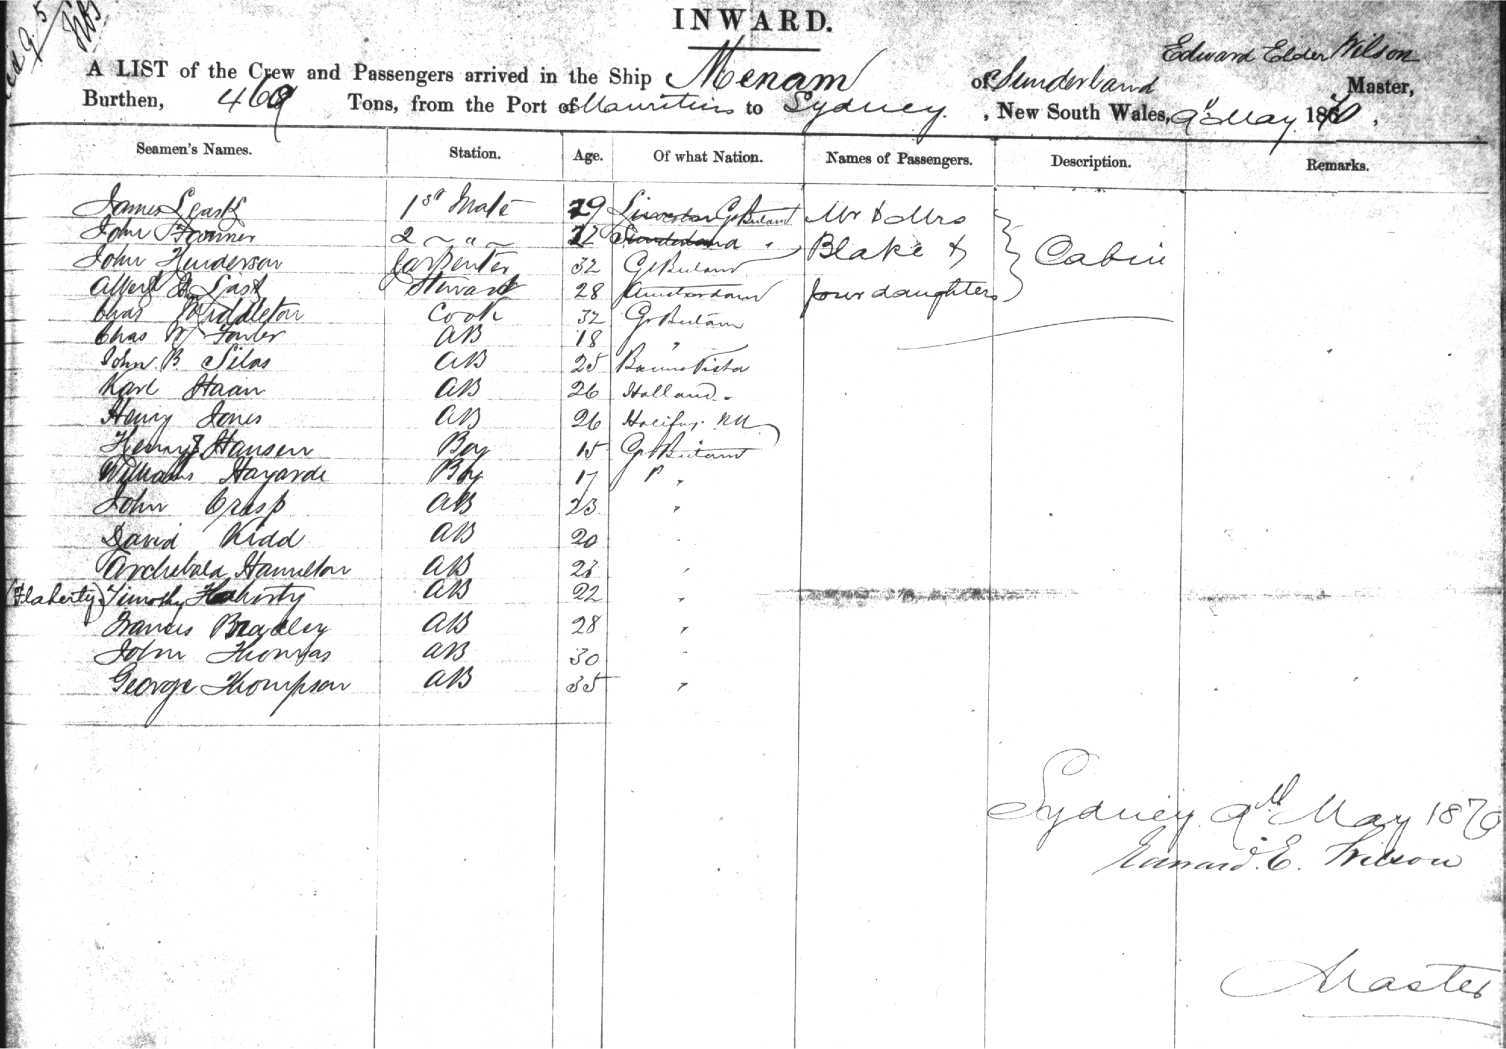 INWARD.
Edward Elder Wilson
A LIST of the Crew and Passengers arrived in the Ship Menam of Sunderland Master,
Burthen, 469 Tons, from the Port of Mauritius to Sydney , New South Wales, 9th May 1870,
Seamen's Names. Station. Age. Of what Nation. Names of Passengers. Description. Remarks.
James 1st Mate 29 Gt Britain Mr & Mrs
John 2 " 22 Sunderland Blake & Cabin
John Henderson Carpenter 32 Gt Britain
Albert Steward 28 Amsterdam four daughters
Chas Middleton Cook 32 Gt Britain
Chas W Fowler AB 18 "
John B Silas AB 25
Karl Haan AB 26 Holland
Henry Jones AB 26 Halifax
Henry Hansen Boy 15 Gt Britain
William Boy 17 " "
John Crisp AB 23 "
David Kidd AB 20
Archibald Hamilton AB 23 "
(Flaherty) Timothy Flaherty AB 22 "
Francis Bradley AB 28 "
John Thomas AB 30
George Thompson AB 35 "
Sydney 9th May 1870
Edward E. Wilson
Master